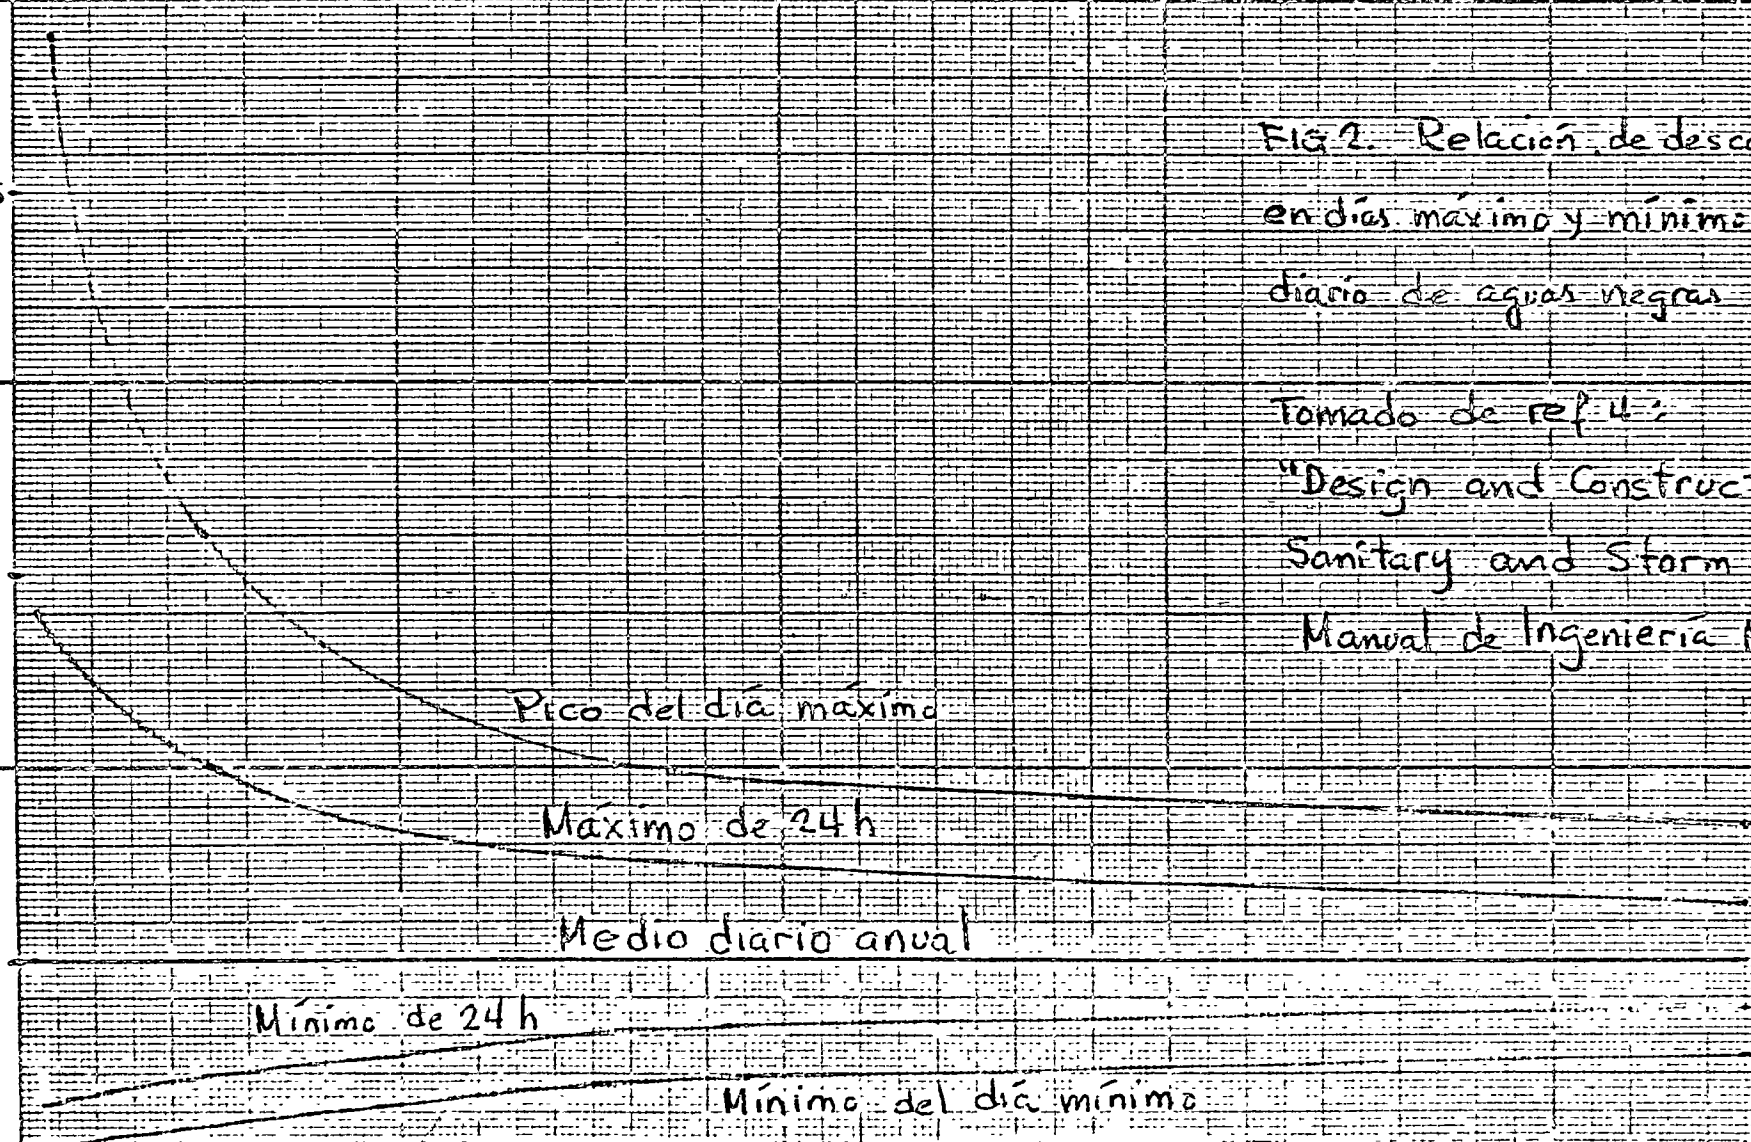 FIG 2. Relación de desca
en días máximo y mínimo
diario de aguas negras
Tomado de ref 4:
"Design and Construc
Sanitary and Storm
Manual de Ingeniería
Pico del día máximo
Máximo de 24 h
Medio diario anual
Mínimo de 24 h
Mínimo del día mínimo